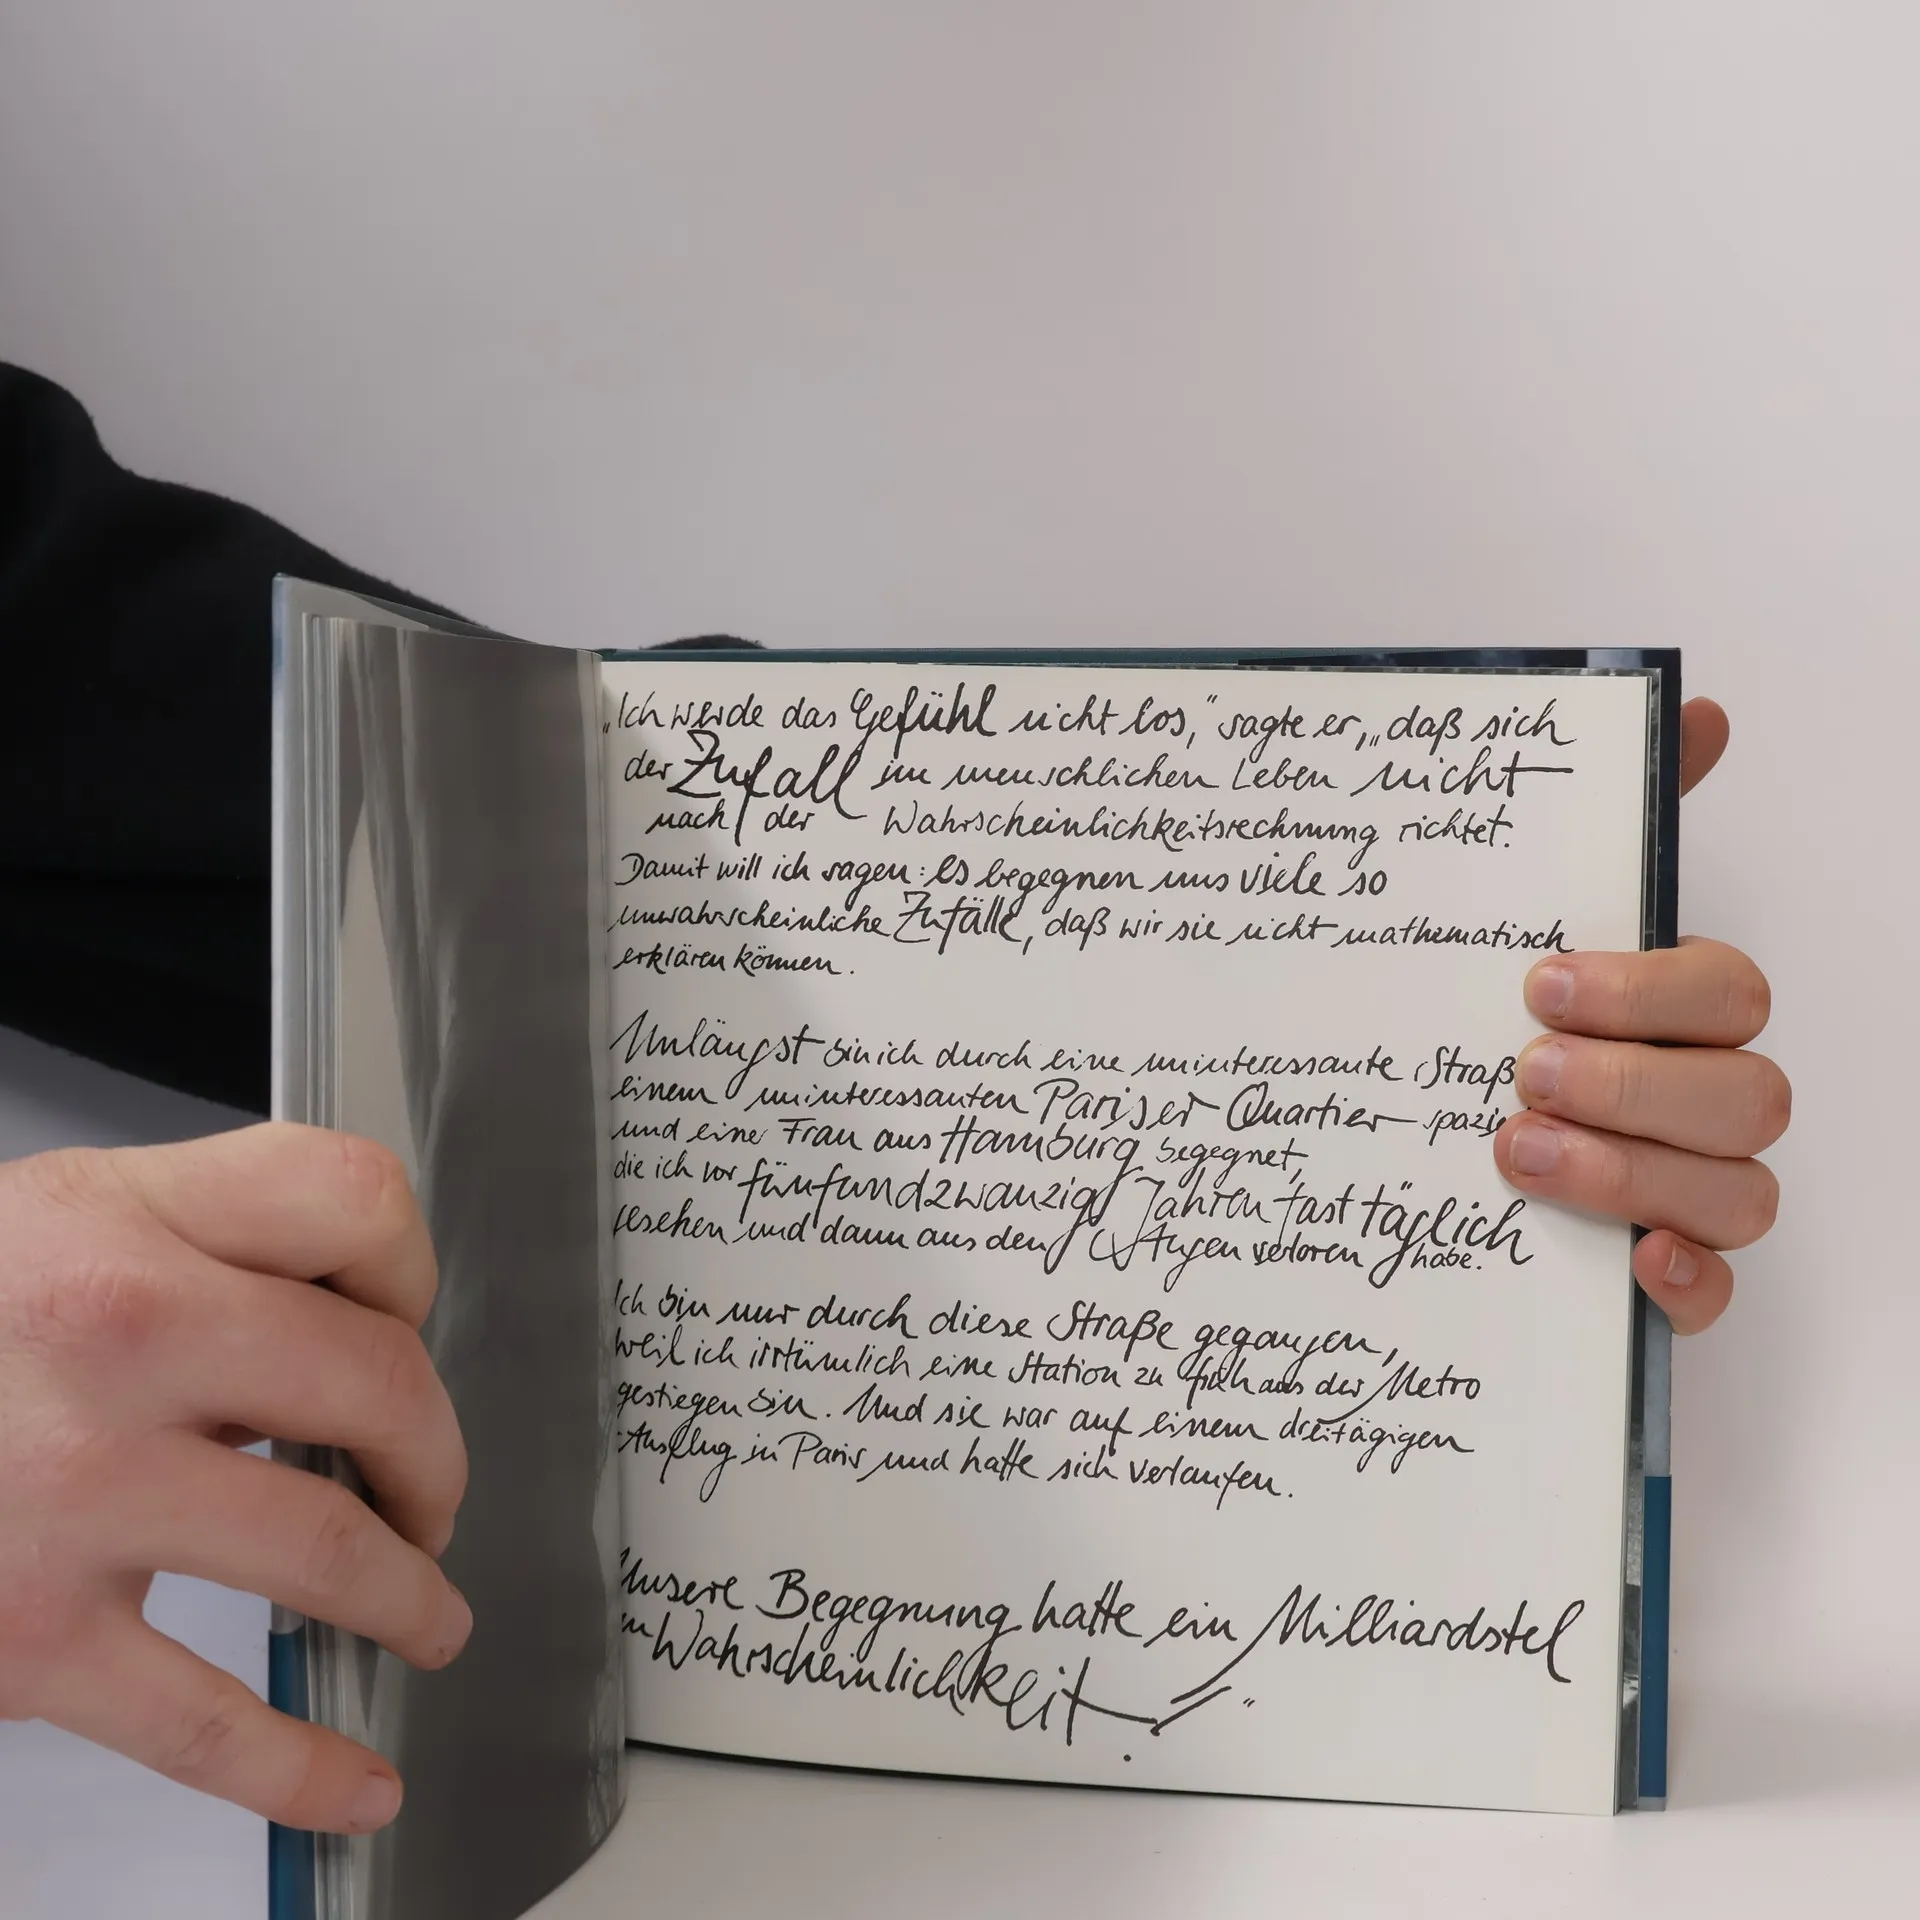 „Ich werde das Gefühl nicht los,“ sagte er, „daß sich
der Zufall im menschlichen Leben nicht
nach der Wahrscheinlichkeitsrechnung richtet.
Damit will ich sagen: Es begegnen uns viele so
unwahrscheinliche Zufälle, daß wir sie nicht mathematisch
erklären können.
Unlängst bin ich durch eine uninteressante Straß
einem uninteressanten Pariser Quartier spazie
und einer Frau aus Hamburg begegnet,
die ich vor fünfundzwanzig Jahren fast täglich
gesehen und dann aus den Augen verloren habe.
Ich bin nur durch diese Straße gegangen,
weil ich irrtümlich eine Station zu früh aus der Metro
gestiegen bin. Und sie war auf einem dreitägigen
Ausflug in Paris und hatte sich verlaufen.
Unsere Begegnung hatte ein Milliardstel
an Wahrscheinlichkeit!“